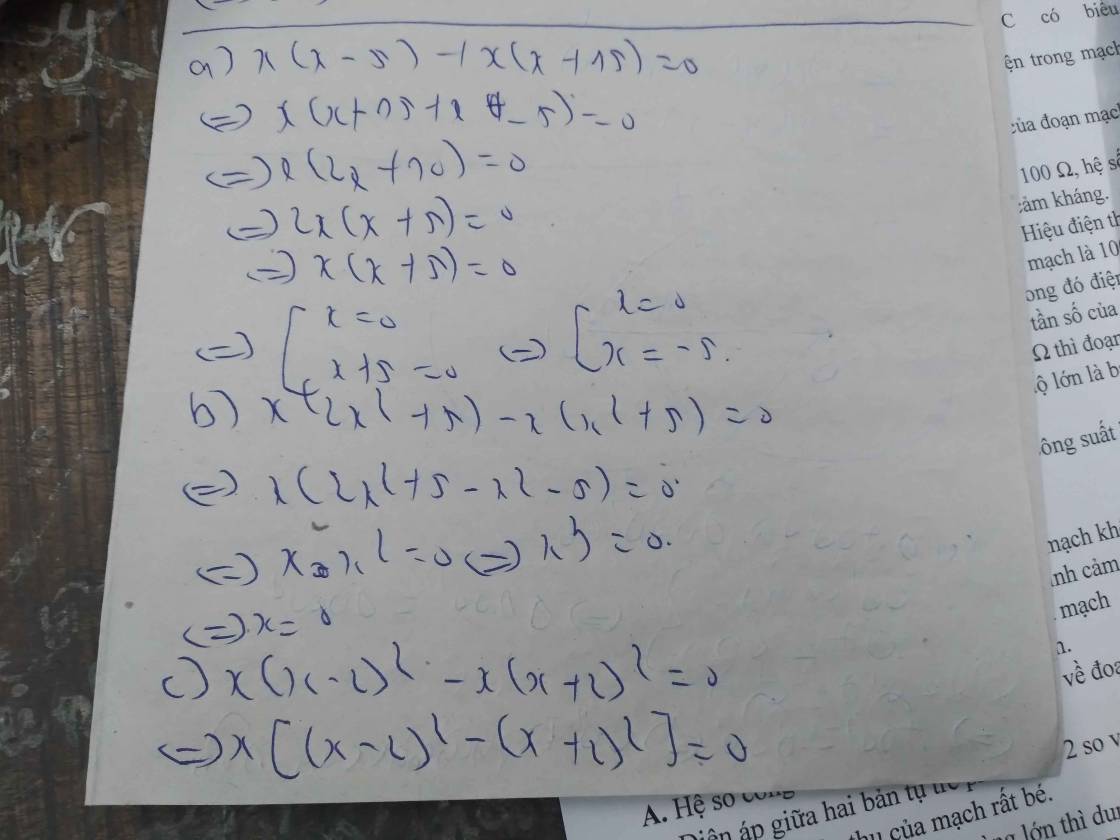 a) x(x-5)+x(x+15)=0
⇔ x(x+15+x-5)=0
⇔ x(2x+10)=0
⇔ 2x(x+5)=0
⇔ x(x+5)=0
⇔ [ x=0 ⇔ [ x=0
x+5=0 x=-5.
b) x(2x²+5)-x(x²+5)=0
⇔ x(2x²+5-x²-5)=0
⇔ x.x²=0 ⇔ x³=0.
⇔ x=0
c) x(x-2)²-x(x+2)²=0
⇔ x[(x-2)²-(x+2)²]=0
C có biểu
ện trong mạch
của đoạn mạch
100 Ω, hệ số
cảm kháng.
Hiệu điện th
mạch là 10
ong đó điện
tần số của
Ω thì đoạn
ộ lớn là b
công suất
mạch kh
nh cảm
mạch
về đoạ
2 so v
A. Hệ số công
Điện áp giữa hai bản tụ
thụ của mạch rất bé.
lớn thì dun